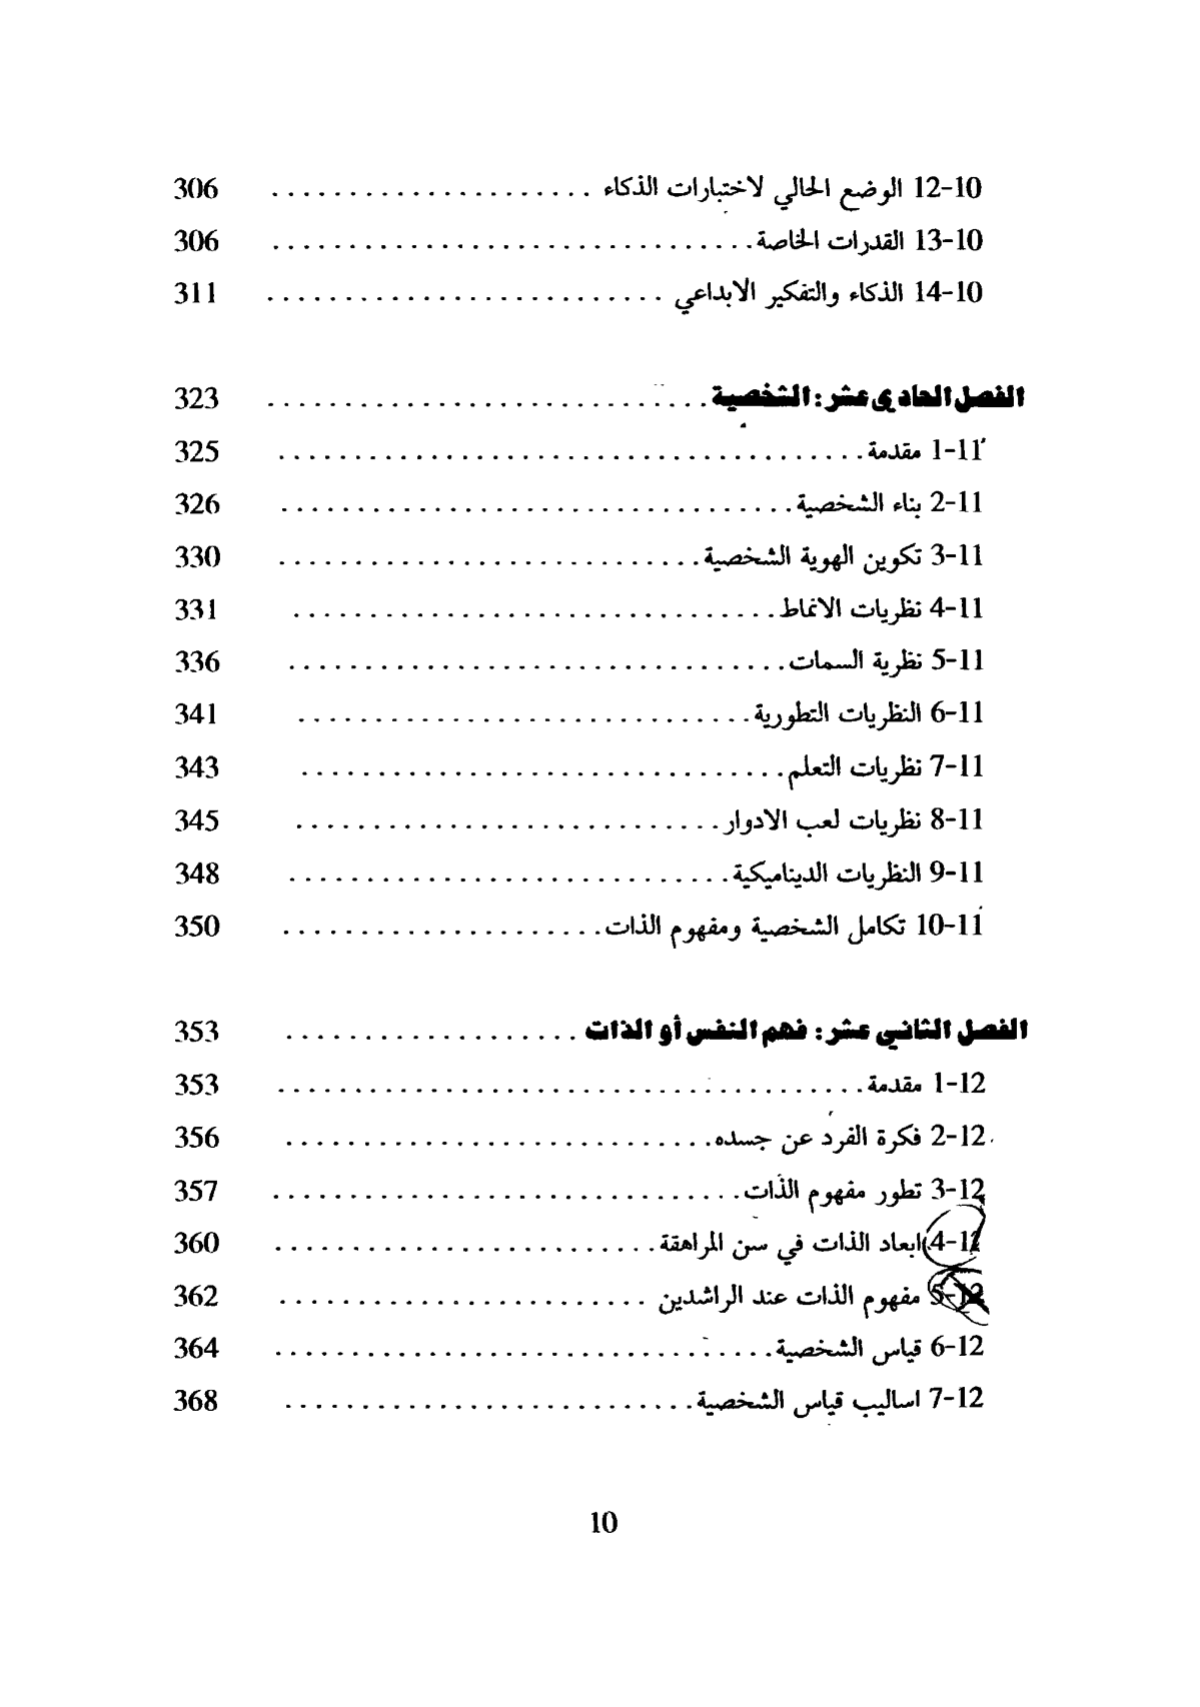 12-10 الوضع الحالي لاختبارات الذكاء ..................... 306
13-10 القدرات الخاصة ............................... 306
14-10 الذكاء والتفكير الابداعي .......................... 311
الفصل الحادى عشر : الشخصية ............................. 323
1-11 مقدمة ...................................... 325
2-11 بناء الشخصية .................................. 326
3-11 تكوين الهوية الشخصية ............................ 330
4-11 نظريات الانماط ................................ 331
5-11 نظرية السمات ................................. 336
6-11 النظريات التطورية .............................. 341
7-11 نظريات التعلم ................................ 343
8-11 نظريات لعب الادوار ............................ 345
9-11 النظريات الديناميكية ............................. 348
10-11 تكامل الشخصية ومفهوم الذات ..................... 350
الفصل الثاني عشر : فهم النفس أو الذات ................... 353
1-12 مقدمة ...................................... 353
2-12 فكرة الفرد عن جسده ............................ 356
3-12 تطور مفهوم الذات ............................... 357
4-12 ابعاد الذات في سن المراهقة ......................... 360
5-12 مفهوم الذات عند الراشدين ........................ 362
6-12 قياس الشخصية ................................. 364
7-12 اساليب قياس الشخصية ........................... 368
10